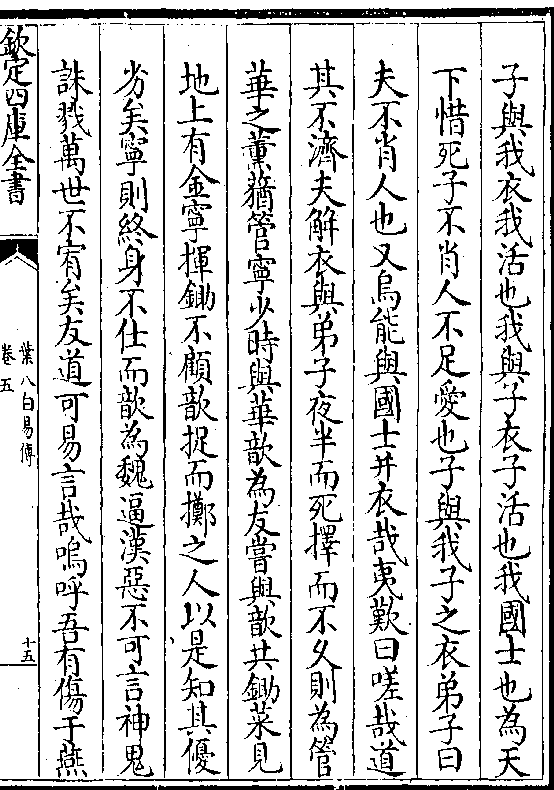 子與我衣我活也我與子衣子活也我國士也為天
下惜死子不肖人不足愛也子與我子之衣弟子曰
夫不肖人也又烏能與國士并衣哉夷歎曰嗟哉道
其不濟夫解衣與弟子夜半而死擇而不久則為管
華之薰蕕管寧少時與華歆為友嘗與歆共鋤菜見
地上有金寧揮鋤不顧歆捉而擲之人以是知其優
劣矣寧則終身不仕而歆為魏逼漢惡不可言神鬼
誅戮萬世不宥矣友道可易言哉嗚呼吾有傷于燕
欽定四庫全書
葉八白易傳
卷五
十五